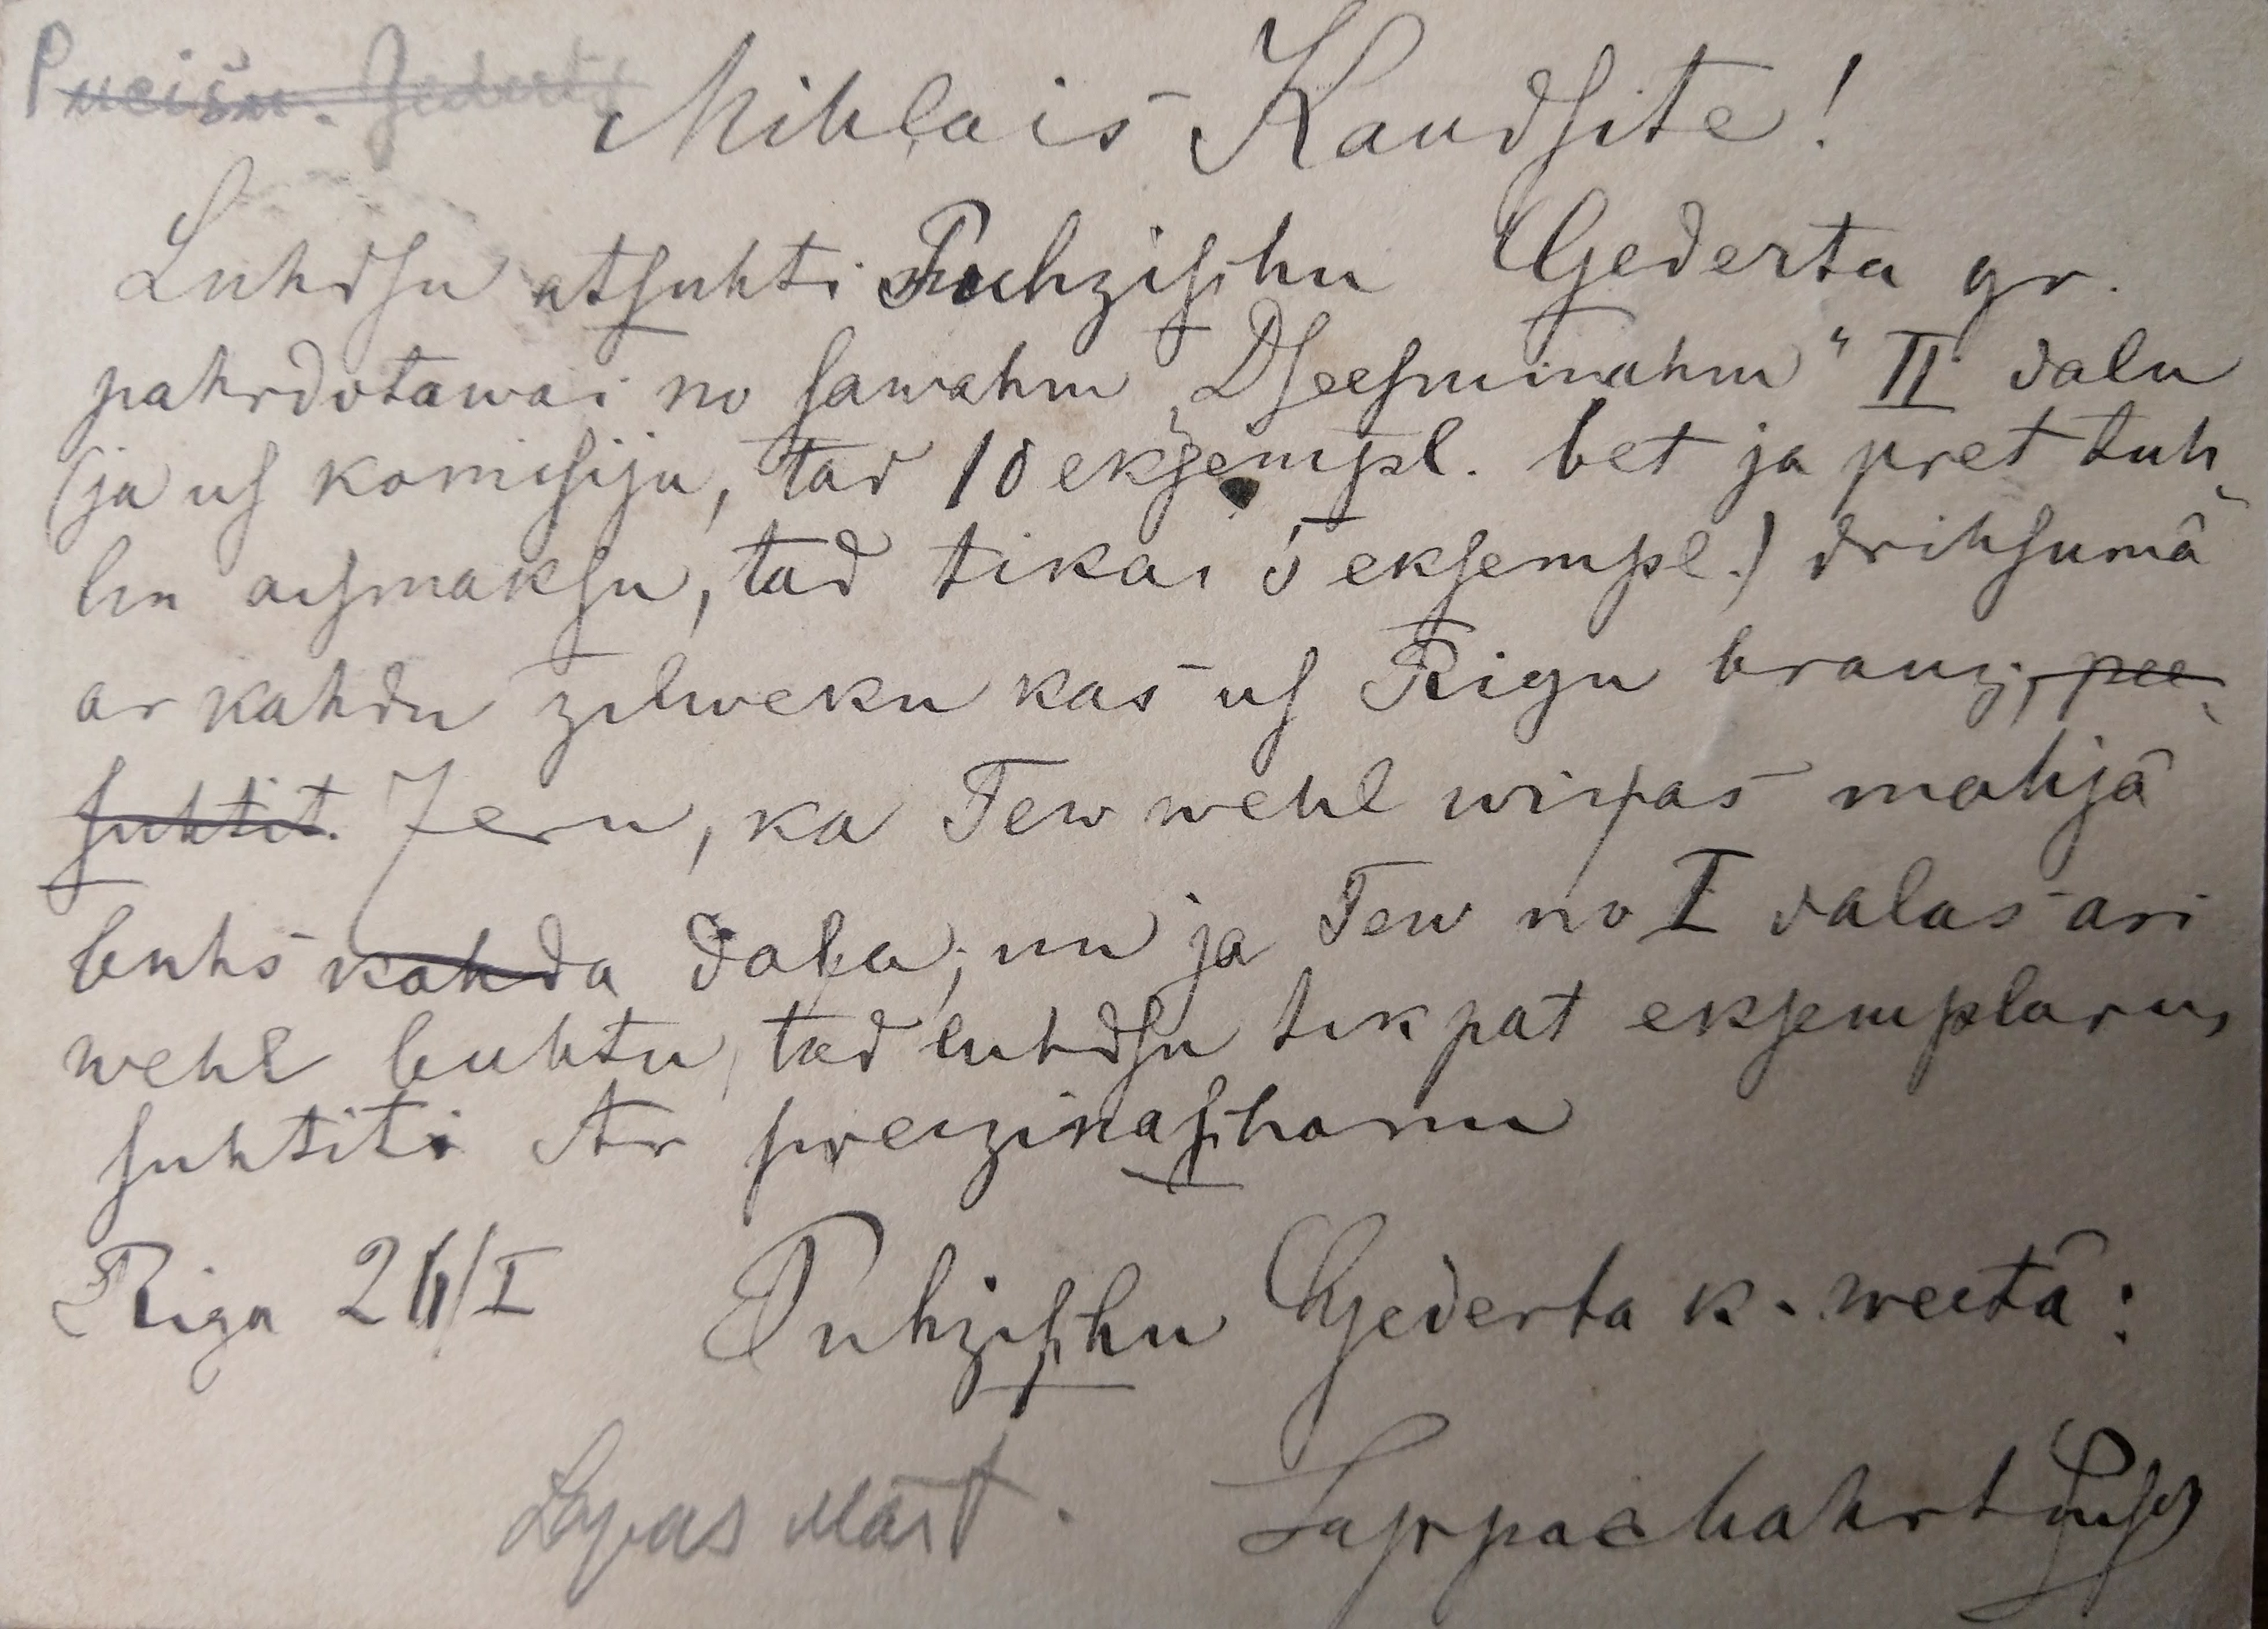 Pucišu. Gederts
Mihlais Kaudsite!
Luhdsu atsuhti Puhzischu Gederta gr.
pahrdotawai no sawahm „Dseesminahm“ II dalu
(ja us komisiju, tad 10 eksempl. bet ja pret tuh-
lin aismaksu, tad tikai 5 eksempl.) drihsumâ
ar kahdu zilweku kas us Rigu brauz, pee-
suhtit. Zeru, ka Tew wehl wiņas mahjâ
buhs kahda daļa; un ja Tew no I dalas ari
wehl buhtu, tad luhdsu tikpat eksemplaru,
suhtiti Ar sweizinaschanu
Riga 26/I Puhzischu Gederta k. weetâ:
Lapas Mārt. Lappas Mahrtiņsch